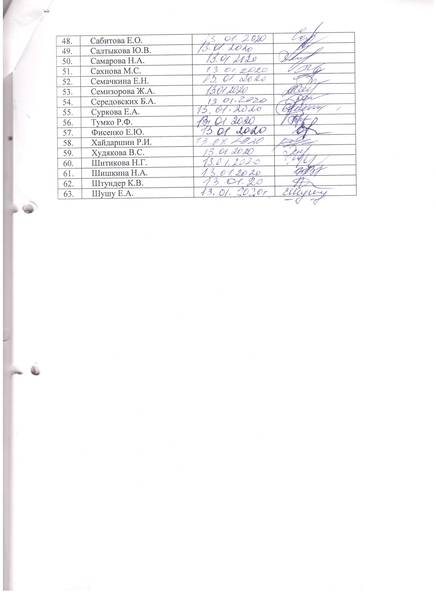 48. Сабитова Е.О. 13 01 2020
49. Салтыкова Ю.В. 13 01 2020
50. Самарова Н.А. 13 01 2020
51. Сахнова М.С. 13 01 2020
52. Семачкина Е.Н. 13 01 2020
53. Семизорова Ж.А. 13 01 2020
54. Середовских Б.А. 13.01.2020
55. Суркова Е.А. 13.01.2020
56. Тумко Р.Ф. 13 01 2020
57. Фисенко Е.Ю. 13 01 2020
58. Хайдаршин Р.И.
59. Худякова В.С. 13 01 2020
60. Шитикова Н.Г. 13.01.2020
61. Шишкина Н.А. 13.01 2020
62. Штундер К.В. 13 01.20
63. Шушу Е.А. 13.01.2020г.